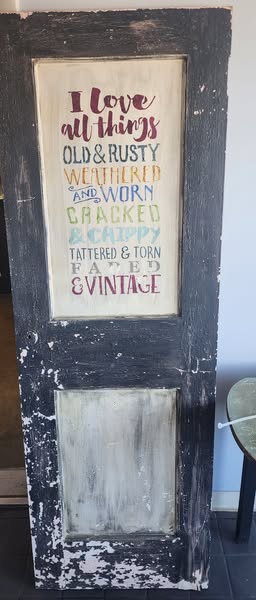 I love
all things
OLD & RUSTY
WEATHERED
AND WORN
CRACKED
& CHIPPY
TATTERED & TORN
FADED
& VINTAGE